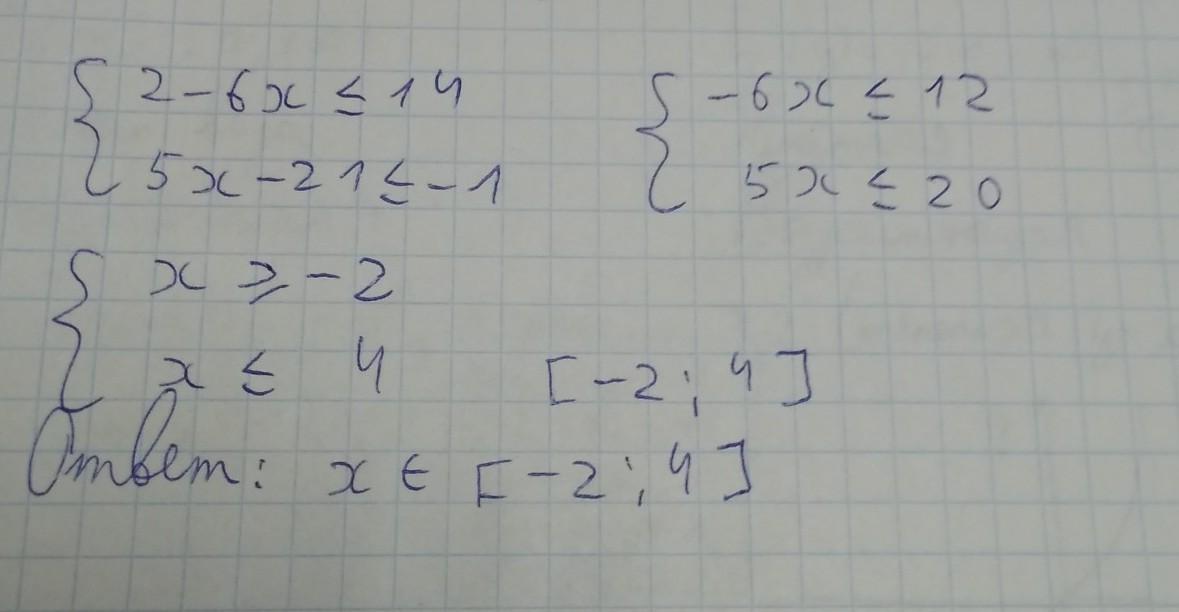 { 2-6x ≤ 14 { -6x ≤ 12
5x-21 ≤ -1 5x ≤ 20
{ x ⩾ -2
x ≤ 4 [-2; 4]
Ответ: x ∈ [-2; 4]